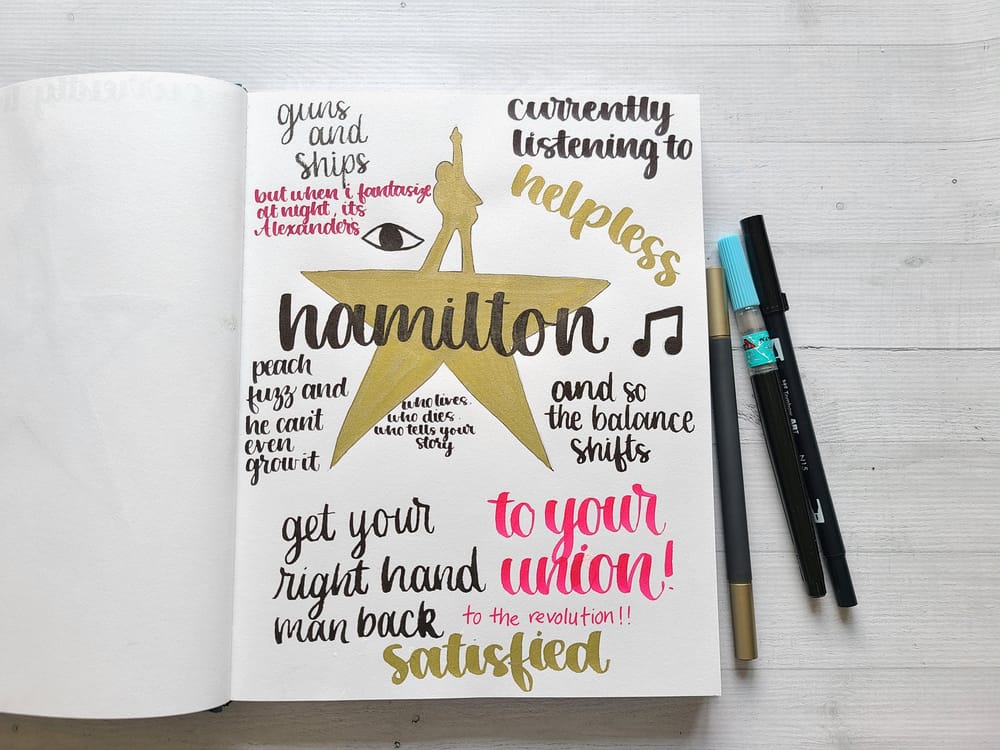 guns
and
ships
but when i fantasize
at night, its
Alexander's
currently
listening to
helpless
hamilton
peach
fuzz and
he can't
even
grow it
who lives.
who dies.
who tells your
story
and so
the balance
shifts
get your
right hand
man back
to your
union!
to the revolution!!
satisfied
ART
N15